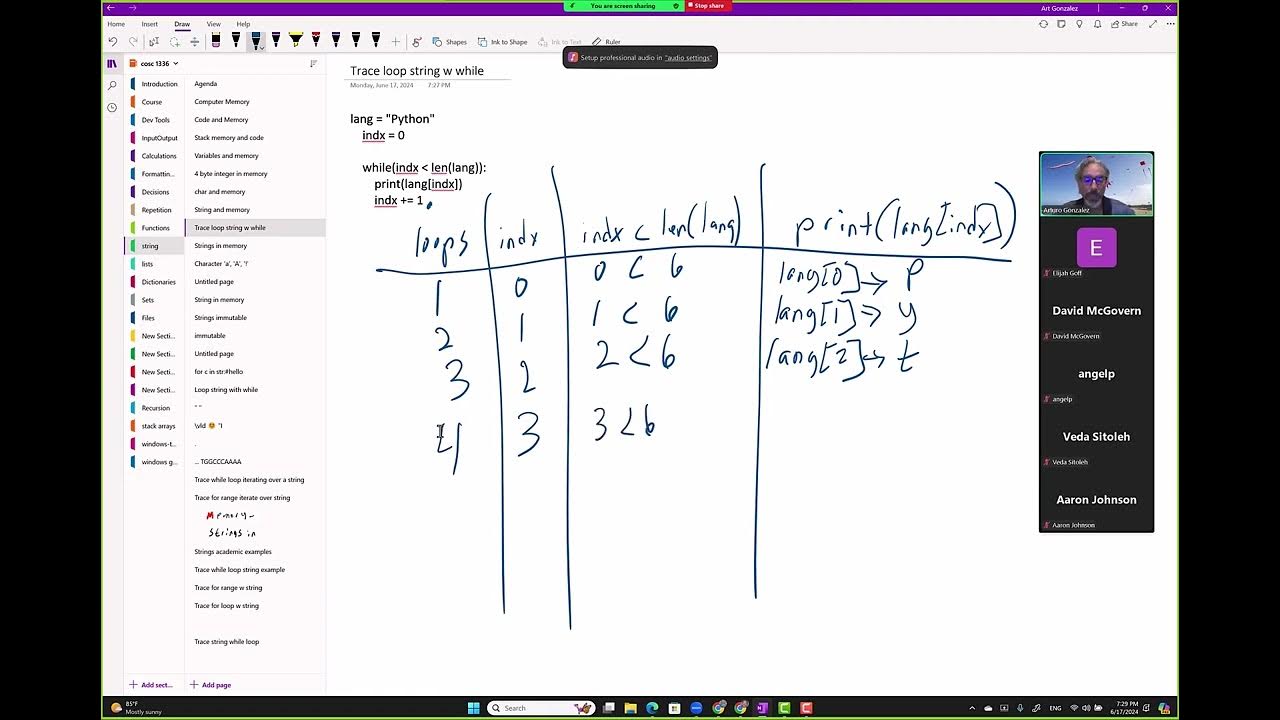 You are screen sharing
Stop share
Art Gonzalez
Home Insert Draw View Help
Share
Shapes Ink to Shape Ink to Text Ruler
Setup professional audio in "audio settings"
cosc 1336
Introduction
Course
Dev Tools
InputOutput
Calculations
Formattin...
Decisions
Repetition
Functions
string
lists
Dictionaries
Sets
Files
New Secti...
New Secti...
New Secti...
New Secti...
Recursion
stack arrays
windows-t...
windows g...
Add sect...
Agenda
Computer Memory
Code and Memory
Stack memory and code
Variables and memory
4 byte integer in memory
char and memory
String and memory
Trace loop string w while
Strings in memory
Character 'a', 'A', '!'
Untitled page
String in memory
Strings immutable
immutable
Untitled page
for c in str:#hello
Loop string with while
" "
.
... TGGCCCAAAA
Trace while loop iterating over a string
Trace for range iterate over string
Memory -
Strings in
Strings academic examples
Trace while loop string example
Trace for range w string
Trace for loop w string
Trace string while loop
Add page
Trace loop string w while
Monday, June 17, 2024 7:27 PM
lang = "Python"
indx = 0
while(indx < len(lang)):
print(lang[indx])
indx += 1
loops indx indx < len(lang) print(lang[indx])
1 0 0 < 6 lang[0] → P
2 1 1 < 6 lang[1] → y
3 2 2 < 6 lang[2] → t
4 3 3 < 6
Arturo Gonzalez
E
Elijah Goff
David McGovern
David McGovern
angelp
angelp
Veda Sitoleh
Veda Sitoleh
Aaron Johnson
Aaron Johnson
85°F
Mostly sunny
Search
ENG
7:29 PM
6/17/2024